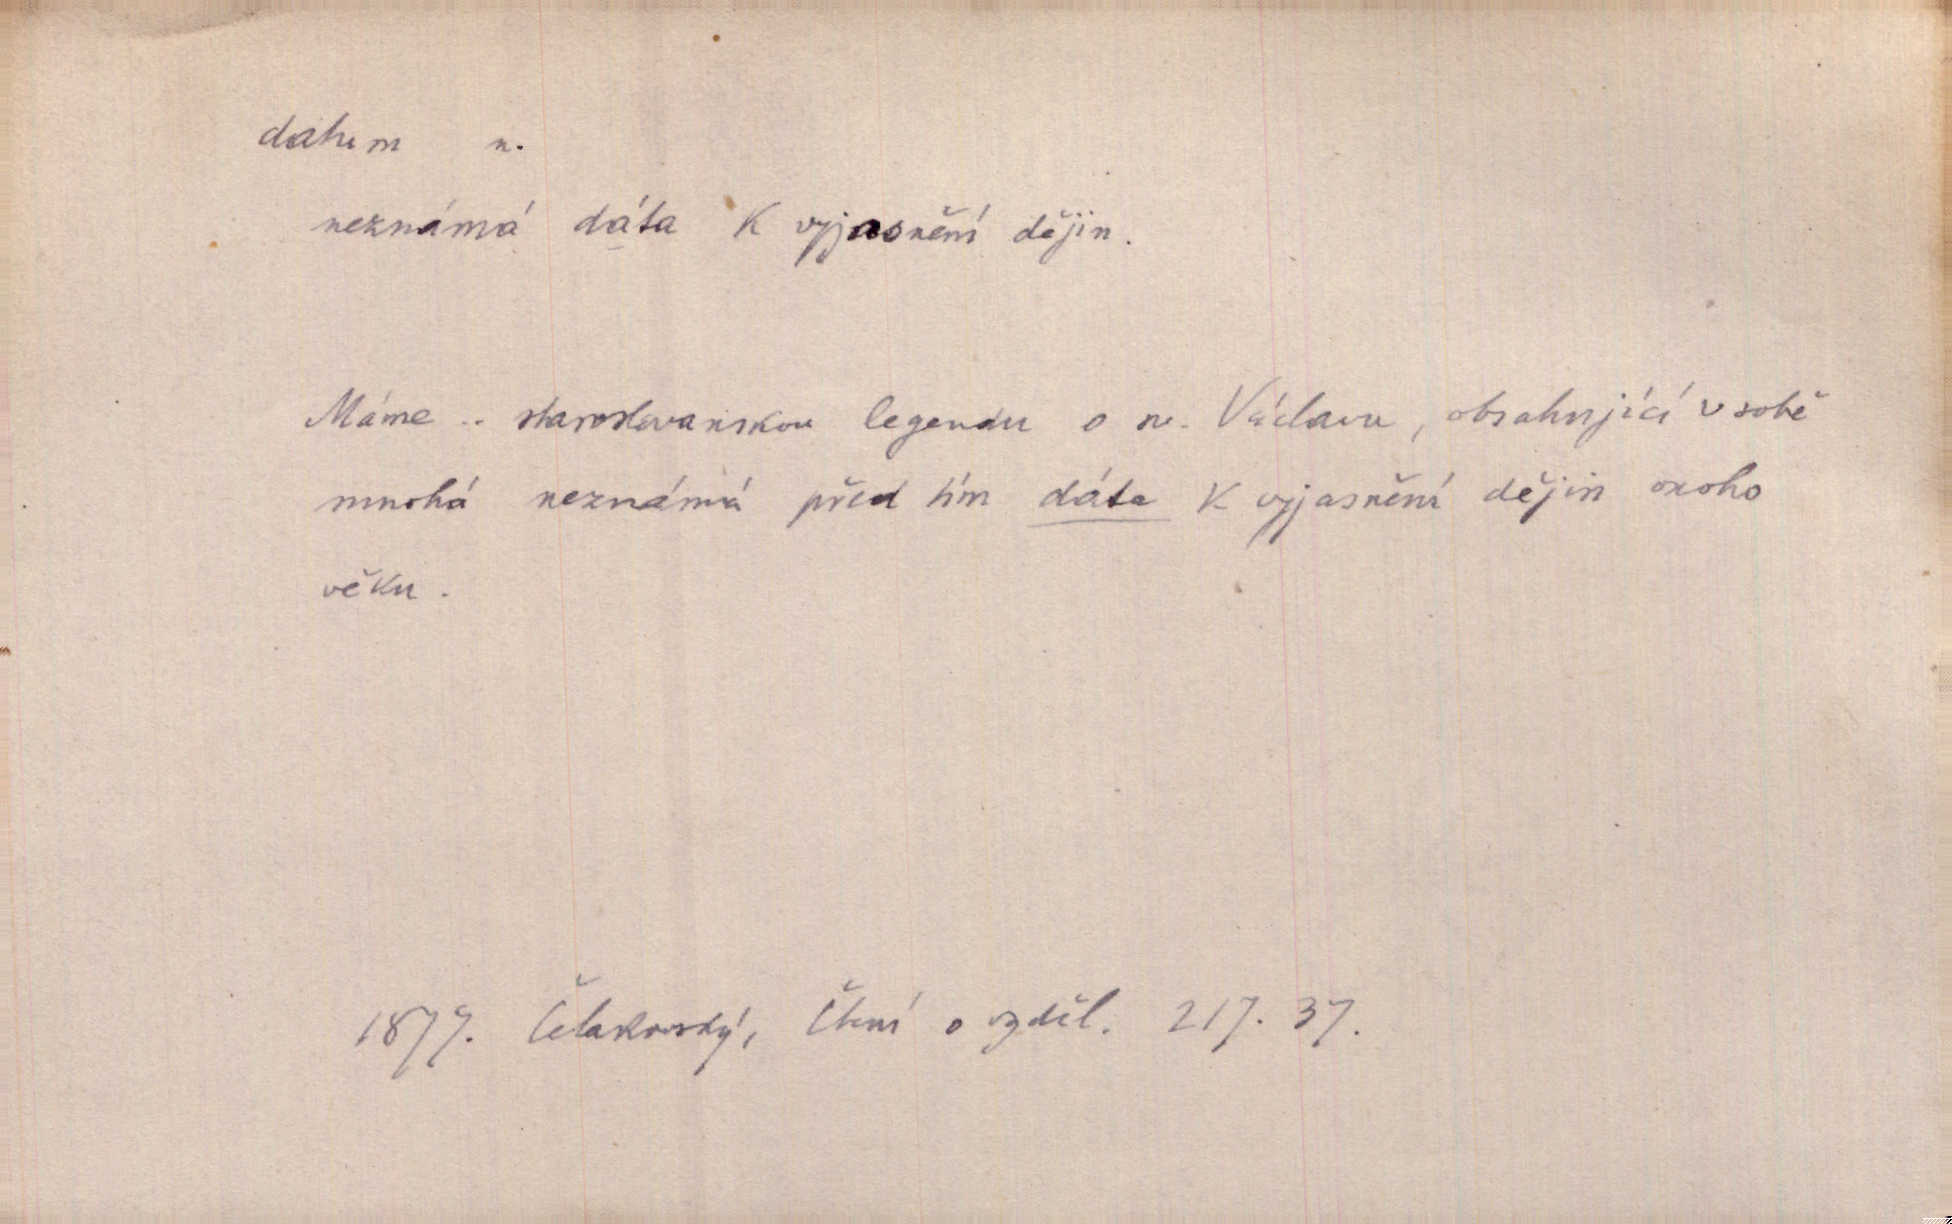 datum n.
neznámá dáta k vyjasnění dějin.
Máme .. staroslovanskou legendu o sv. Václavu, obsahující v sobě
mnohá neznámá před tím dáta k vyjasnění dějin onoho
věku.
1877. Čelakovský, Čtení o vzděl. 217. 37.